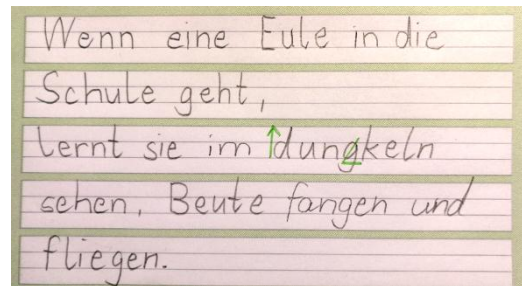 Wenn eine Eule in die
Schule geht,
lernt sie im dungkeln
sehen, Beute fangen und
fliegen.